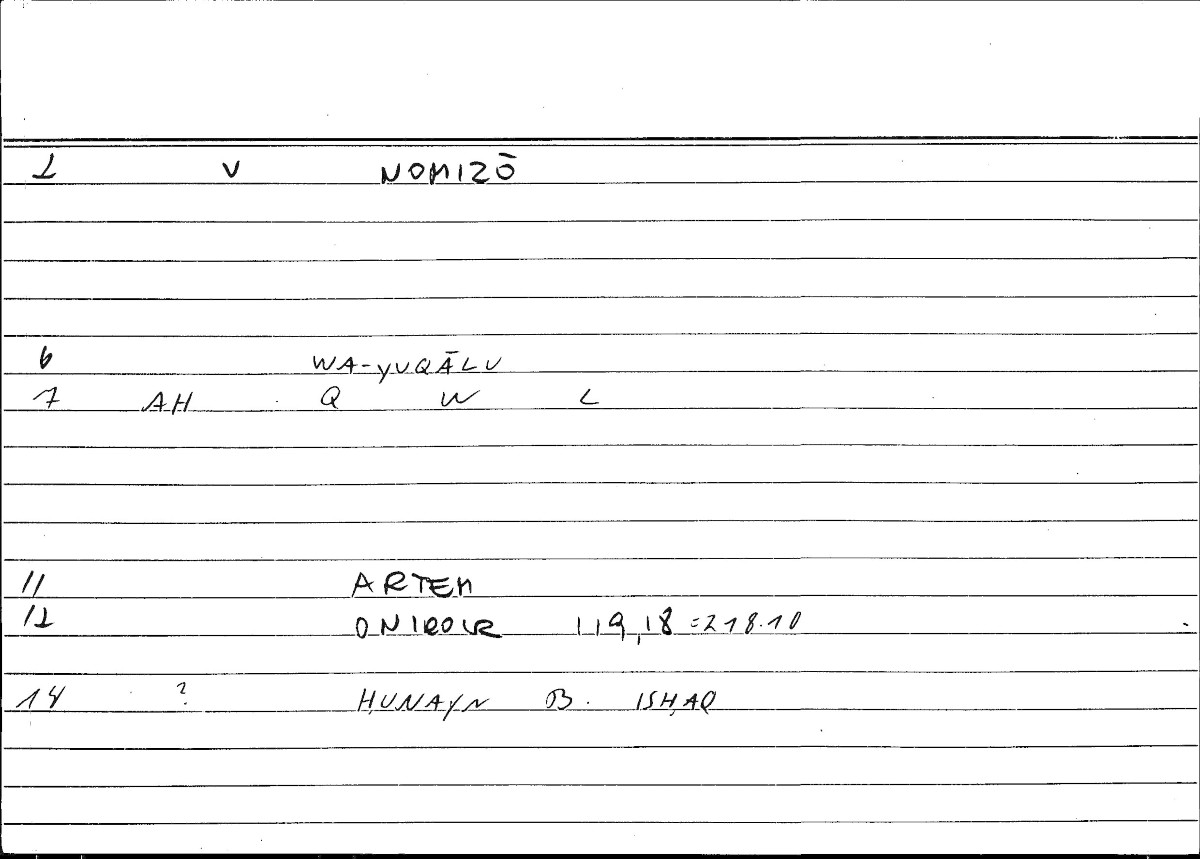 1 V NOMIZŌ
6 WA-YUQĀLU
7 AH Q W L
11 ARTEM
12 ONIROCR 119,18 =218.10
14 ? ḤUNAYN B. ISḤAQ